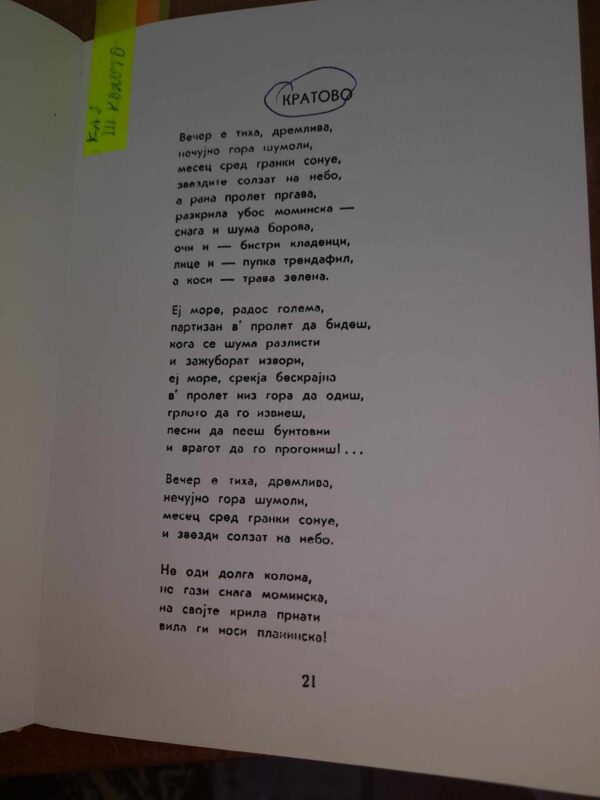 КРАТОВО
Вечер е тиха, дремлива,
нечујно гора шумоли,
месец сред гранки сонуе,
звездите солзат на небо,
а рана пролет пргава,
разкрила убос моминска —
снага и шума борова,
очи и — бистри кладенци,
лице и — пупка трендафил,
а коси — трава зелена.
Еј море, радос голема,
партизан в' пролет да бидеш,
кога се шума разлисти
и зажуборат извори,
еј море, среќја бескрајна
в' пролет низ гора да одиш,
грлото да го извиеш,
песни да пееш бунтовни
и врагот да го прогониш!...
Вечер е тиха, дремлива,
нечујно гора шумоли,
месец сред гранки сонуе,
и звезди солзат на небо.
Не оди долга колона,
не гази снага моминска,
на својте крила прнати
вила ги носи планинска!
21